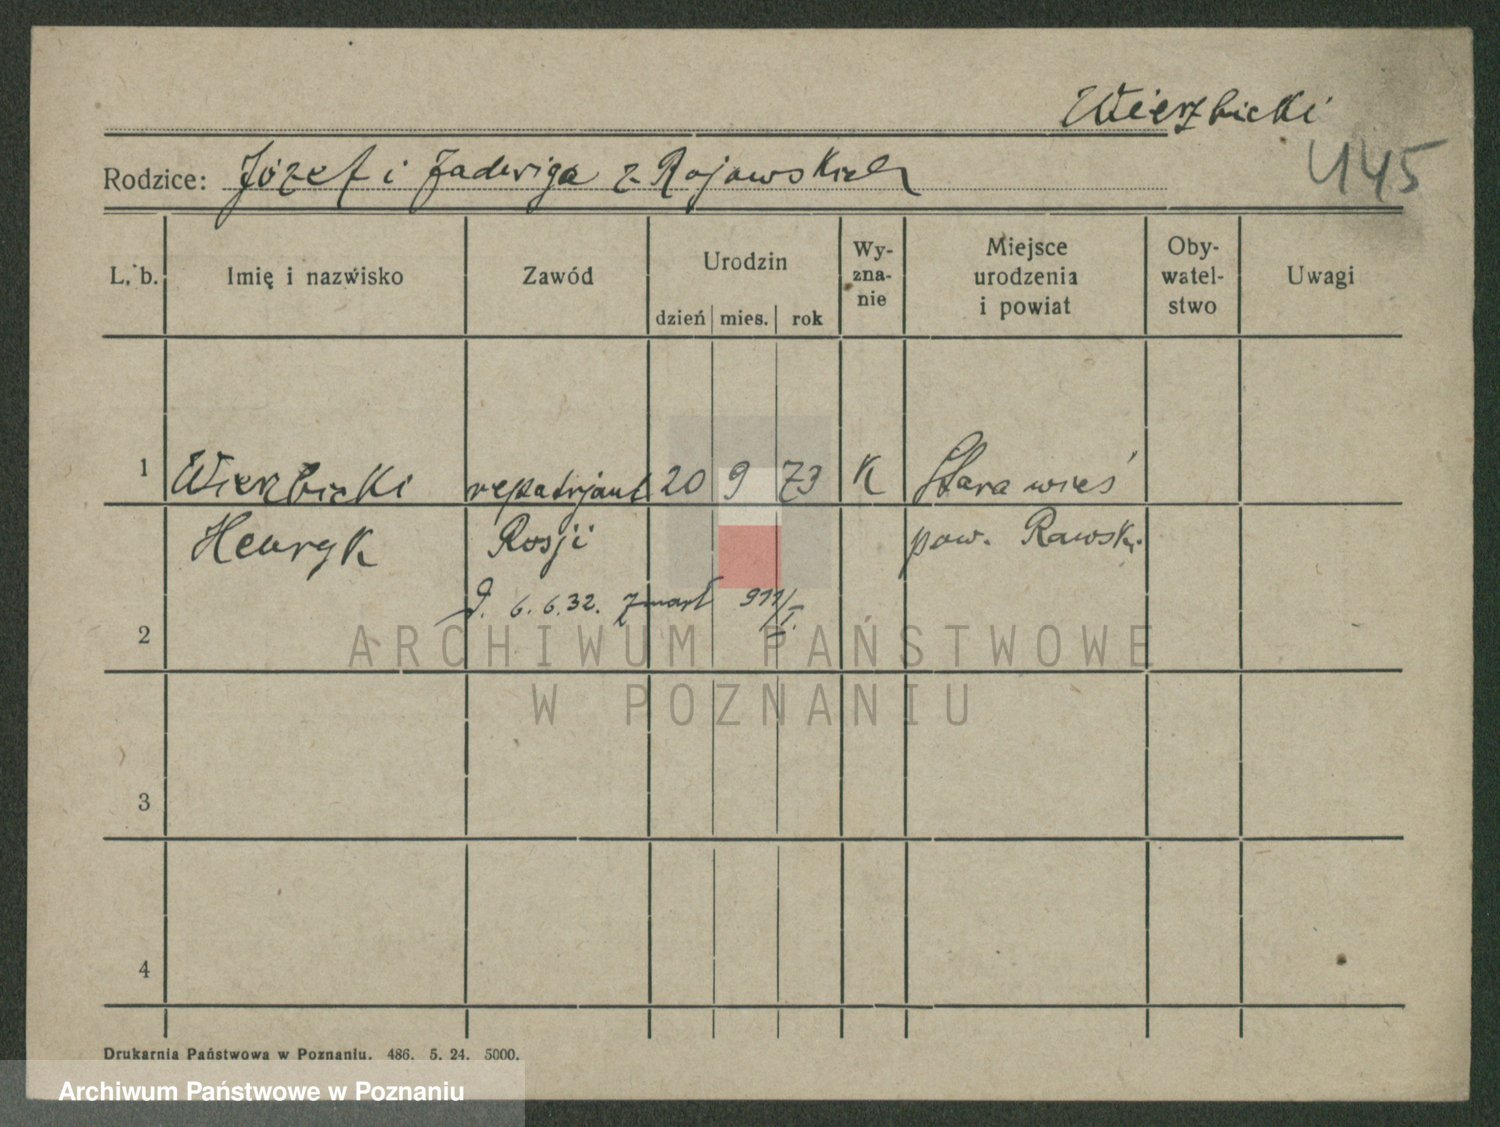 Wierzbicki
445
Rodzice: Józef i Jadwiga z Rojowskich
L. b. Imię i nazwisko Zawód Urodzin dzień mies. rok Wy-zna-nie Miejsce urodzenia i powiat Oby-watel-stwo Uwagi
1 Wierzbicki repatrjant 20 9 73 K Stara wieś
Henryk Rosji pow. Rawsk.
d. 6.6.32. zmarł 911/I.
2
ARCHIWUM PAŃSTWOWE
W POZNANIU
3
4
Drukarnia Państwowa w Poznaniu. 486. 5. 24. 5000.
Archiwum Państwowe w Poznaniu